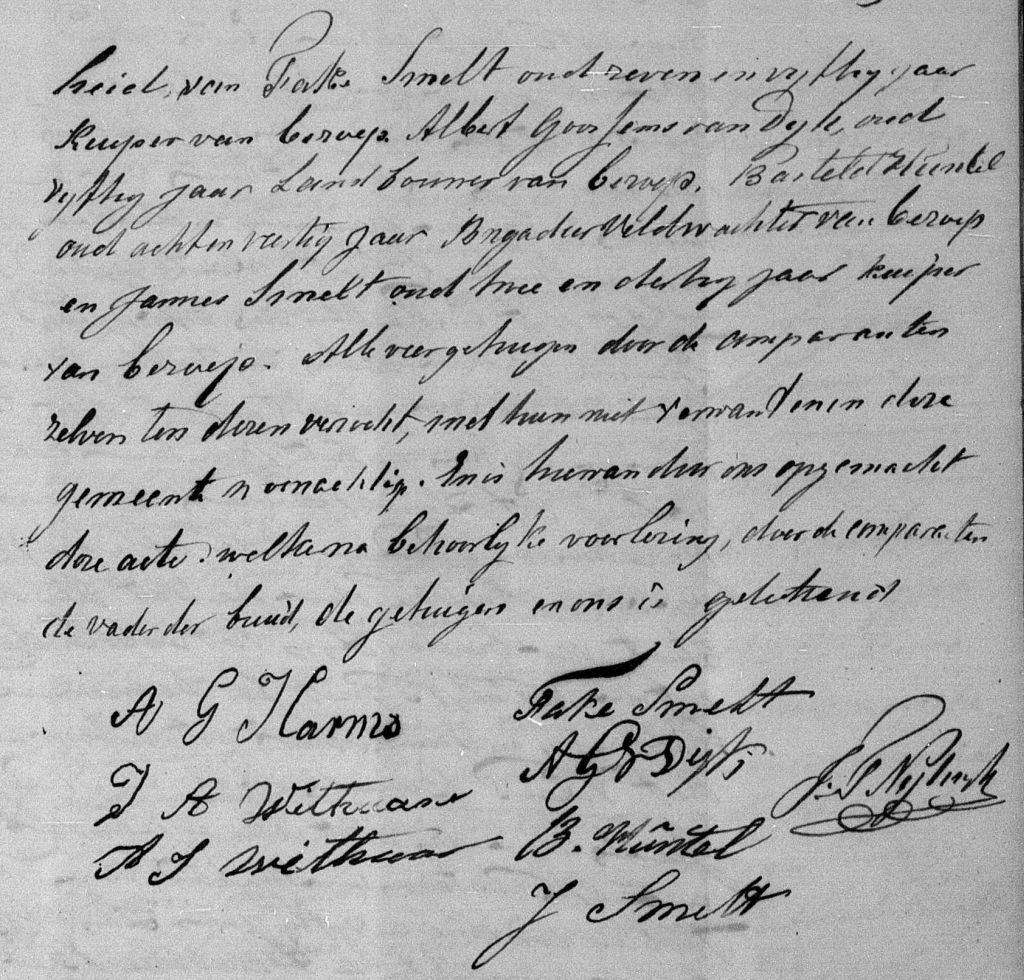 heid, van Fake Smelt oud zeven en vyftig jaar
kuiper van beroep. Albert Goossens van Dyk, oud
vyftig jaar Landbouwer van beroep. Barteld Kuntel
oud acht en veertig jaar Brigadier Veldwachter van beroep
en Jannes Smelt oud twee en dertig jaar kuiper
van beroep. Alle vier getuigen door de comparanten
zelven ten dezen verzocht, met hun niet verwant en in deze
gemeente woonachtig. En is hiervan door ons opgemaakt
deze acte welke na behoorlyke voorlezing, door de comparanten
de vader der bruid, de getuigen en ons is geteekend
A G Harms
Fake Smelt
J A Witkaar
A G v Dijk
A J Witkaar
B. Kŭntel
J Smelt